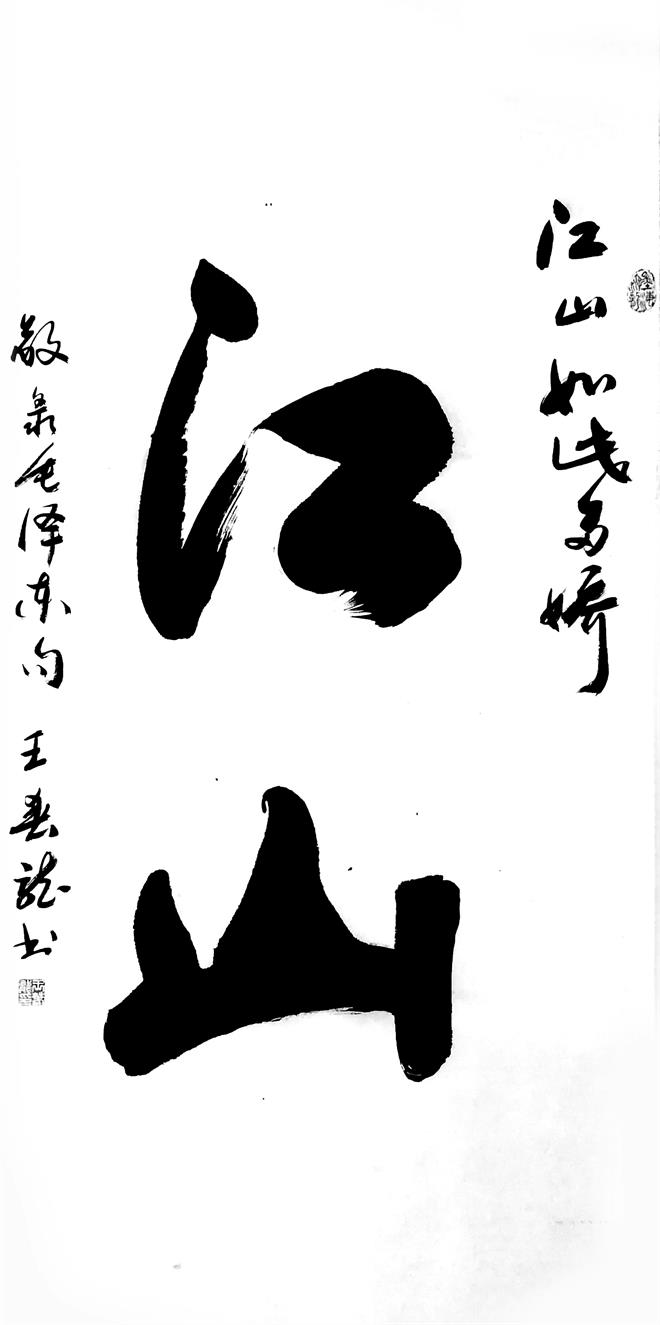 江山如此多娇
江山
敬录毛泽东句 王春龙书